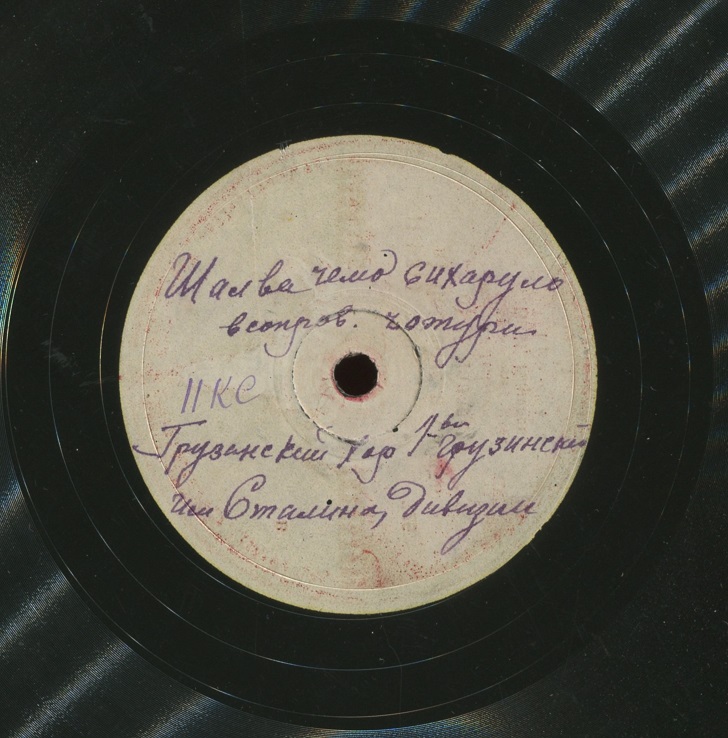 Шалва чемо сихаруло
в сопров. чонгури
11 КС
Грузинский хор 1-ой грузинской
им Сталина, Дивизии